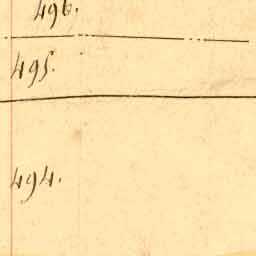 496.
495.
494.